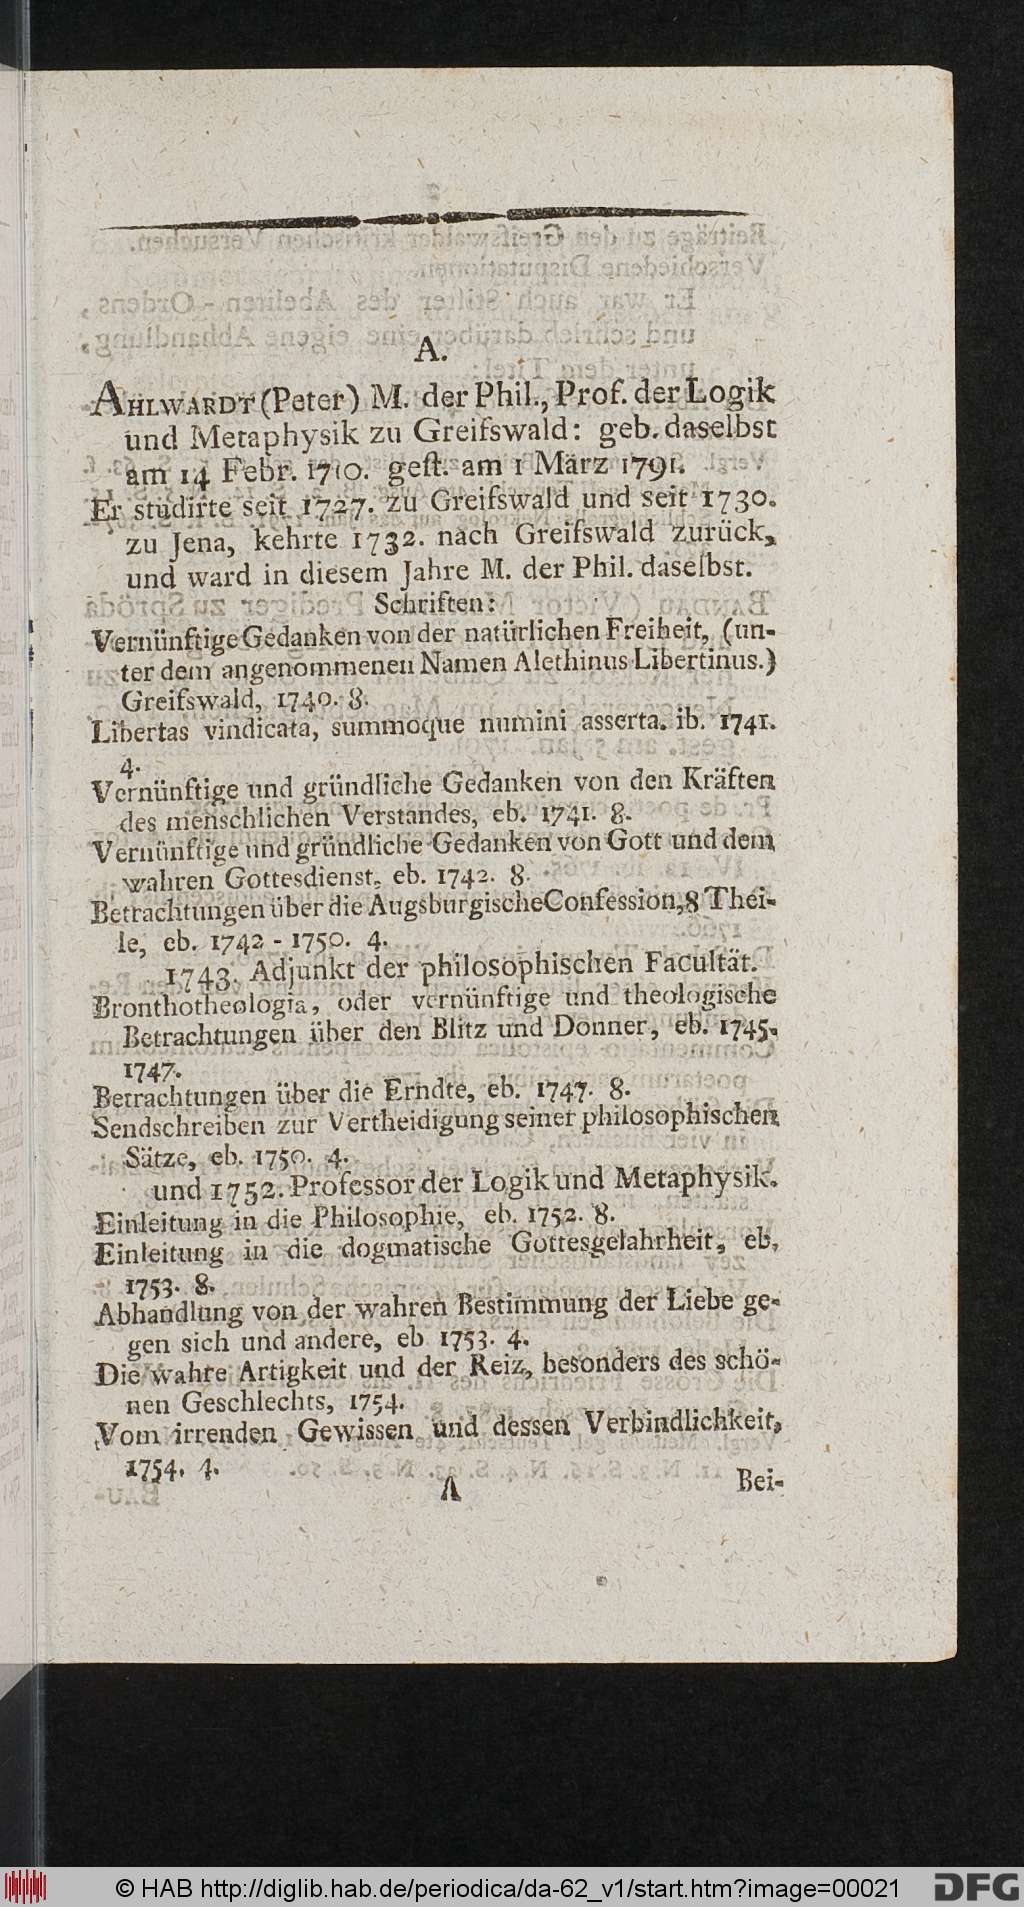 A.
AHLWARDT (Peter) M. der Phil., Prof. der Logik
und Metaphysik zu Greifswald: geb. daselbst
am 14 Febr. 1710. gest. am 1 März 1791.
Er studirte seit 1727. zu Greifswald und seit 1730.
zu Jena, kehrte 1732. nach Greifswald zurück,
und ward in diesem Jahre M. der Phil. daselbst.
Schriften:
Vernünftige Gedanken von der natürlichen Freiheit, (un-
ter dem angenommenen Namen Alethinus Libertinus.)
Greifswald, 1740. 8.
Libertas vindicata, summoque numini asserta. ib. 1741.
4.
Vernünftige und gründliche Gedanken von den Kräften
des menschlichen Verstandes, eb. 1741. 8.
Vernünftige und gründliche Gedanken von Gott und dem
wahren Gottesdienst, eb. 1742. 8.
Betrachtungen über die Augsburgische Confession, 8 Thei-
le, eb. 1742 - 1750. 4.
1743. Adjunkt der philosophischen Facultät.
Bronthotheologia, oder vernünftige und theologische
Betrachtungen über den Blitz und Donner, eb. 1745.
1747.
Betrachtungen über die Erndte, eb. 1747. 8.
Sendschreiben zur Vertheidigung seiner philosophischen
Sätze, eb. 1750. 4.
und 1752. Professor der Logik und Metaphysik.
Einleitung in die Philosophie, eb. 1752. 8.
Einleitung in die dogmatische Gottesgelahrheit, eb.
1753. 8.
Abhandlung von der wahren Bestimmung der Liebe ge-
gen sich und andere, eb 1753. 4.
Die wahre Artigkeit und der Reiz, besonders des schö-
nen Geschlechts, 1754.
Vom irrenden Gewissen und dessen Verbindlichkeit,
1754. 4.
A Bei-
© HAB http://diglib.hab.de/periodica/da-62_v1/start.htm?image=00021
DFG